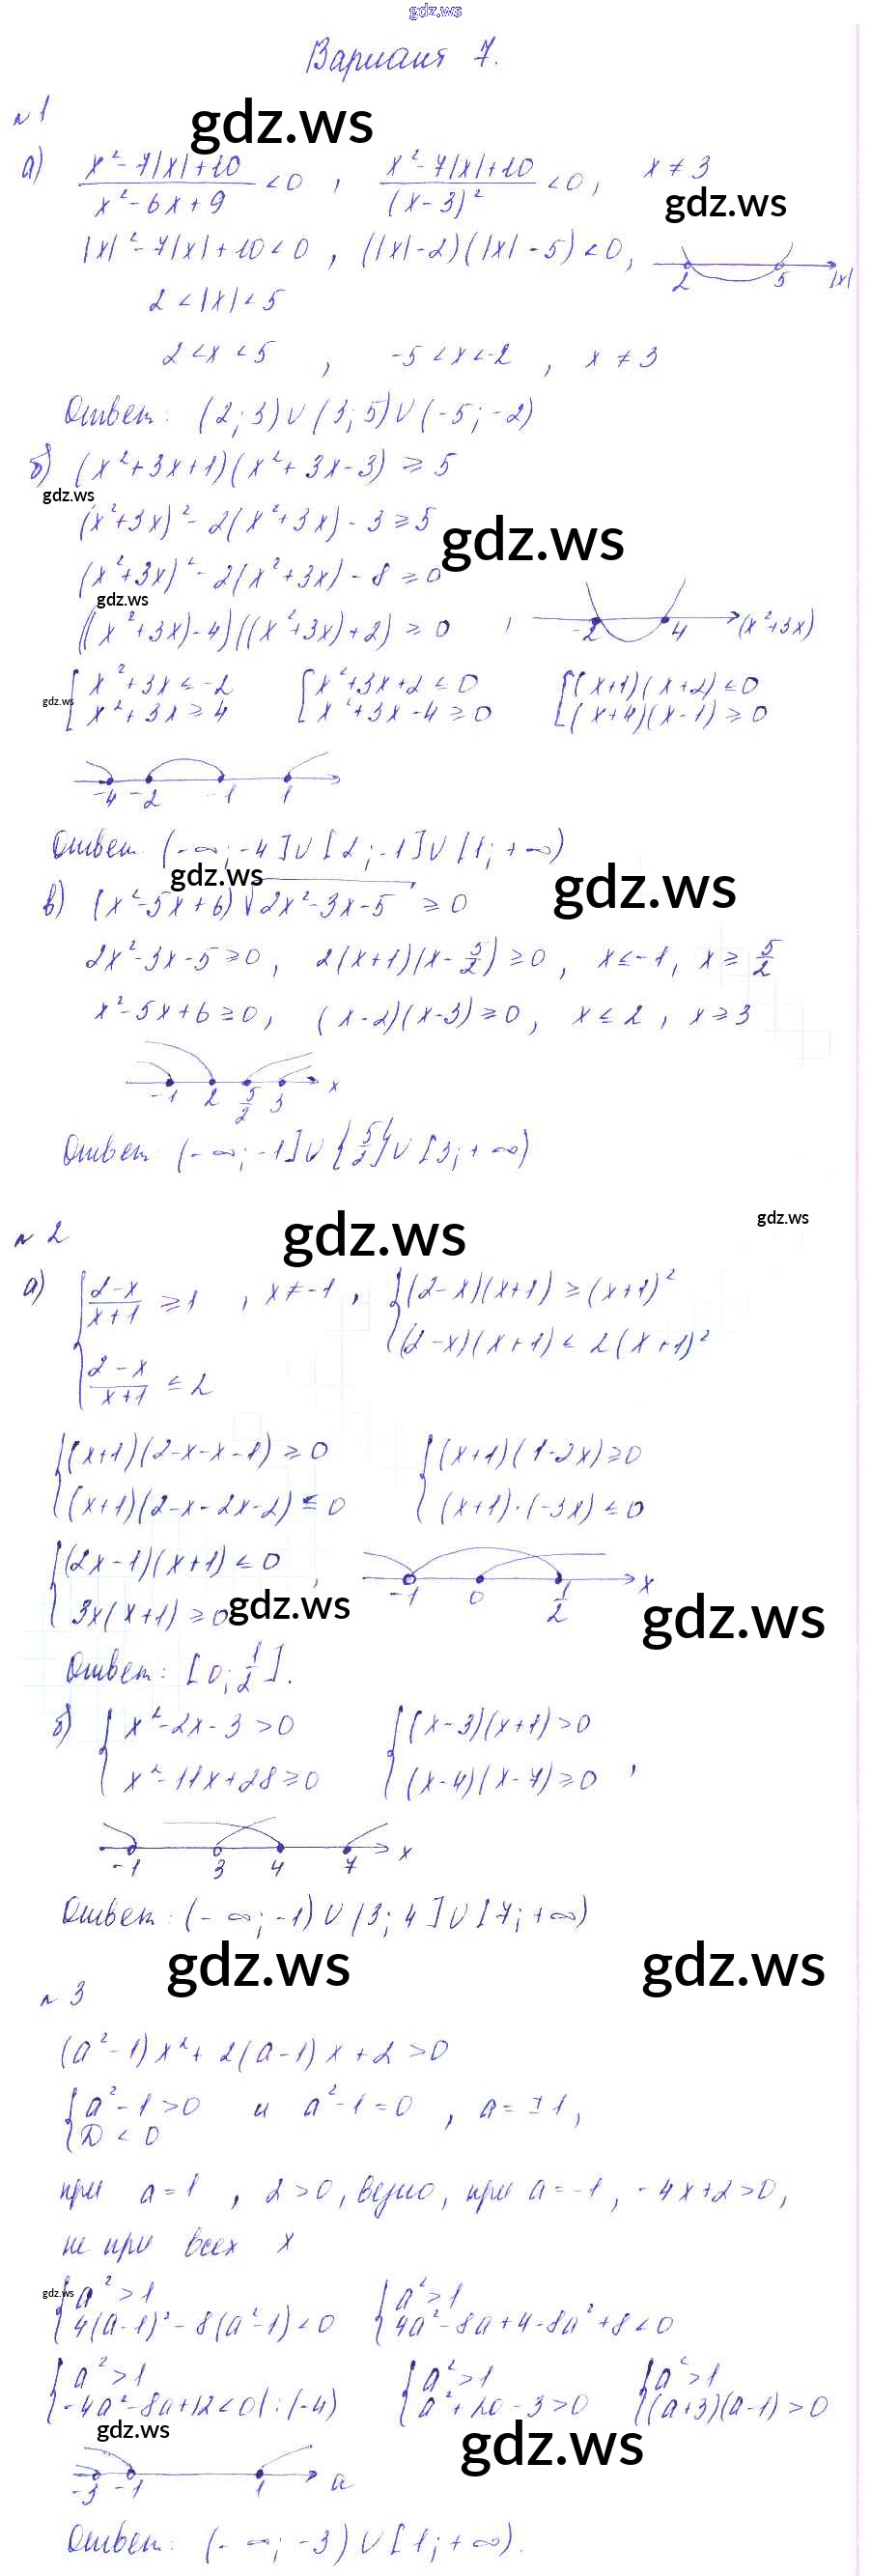 gdz.ws
Вариант 7.
№1
gdz.ws
а) (x²-7|x|+10)/(x²-6x+9) <0 , (x²-7|x|+10)/(x-3)² <0, x≠3
gdz.ws
|x|²-7|x|+10<0 , (|x|-2)(|x|-5)<0,
2 5 |x|
2<|x|<5
2<x<5 , -5<x<-2 , x≠3
Ответ: (2;3)∪(3;5)∪(-5;-2)
б) (x²+3x+1)(x²+3x-3)≥5
gdz.ws
(x²+3x)²-2(x²+3x)-3≥5
gdz.ws
(x²+3x)²-2(x²+3x)-8≥0
gdz.ws
((x²+3x)-4)((x²+3x)+2)≥0 ,
-2 4 (x²+3x)
[x²+3x≤-2 [x²+3x+2≤0 [(x+1)(x+2)≤0
gdz.ws
x²+3x≥4 x²+3x-4≥0 (x+4)(x-1)≥0
-4 -2 -1 1
Ответ (-∞;-4]∪[2;-1]∪[1;+∞)
gdz.ws
gdz.ws
в) (x²-5x+6)√2x²-3x-5 ≥0
2x²-3x-5≥0, 2(x+1)(x-5/2)≥0, x≤-1, x≥5/2
x²-5x+6≥0, (x-2)(x-3)≥0, x≤2, x≥3
-1 2 5/2 3 x
Ответ: (-∞;-1]∪{5/2}∪[3;+∞)
gdz.ws
gdz.ws
№2
а) {(2-x)/(x+1) ≥1 , x≠-1 , {(2-x)(x+1)≥(x+1)²
(2-x)(x+1)≤2(x+1)²
(2-x)/(x+1) ≤2
{(x+1)(2-x-x-1)≥0 {(x+1)(1-2x)≥0
(x+1)(2-x-2x-2)≤0 (x+1)·(-3x)≤0
{(2x-1)(x+1)≤0 ,
-1 0 1/2 x
3x(x+1)≥0
gdz.ws
gdz.ws
Ответ: [0;1/2].
б) {x²-2x-3>0 {(x-3)(x+1)>0
x²-11x+28≥0 (x-4)(x-7)≥0 ,
-1 3 4 7 x
Ответ: (-∞;-1)∪(3;4]∪[7;+∞)
gdz.ws
gdz.ws
№3
(a²-1)x²+2(a-1)x+2>0
{a²-1>0 и a²-1=0 , a=±1,
D<0
при a=1 , 2>0, верно, при a=-1, -4x+2>0,
не при всех x
gdz.ws
{a²>1 {a²>1
4(a-1)²-8(a²-1)<0 4a²-8a+4-8a²+8<0
{a²>1 {a²>1 {a²>1
-4a²-8a+12<0|:(-4) a²+2a-3>0 (a+3)(a-1)>0
gdz.ws
gdz.ws
-3 -1 1 a
Ответ: (-∞;-3)∪[1;+∞).